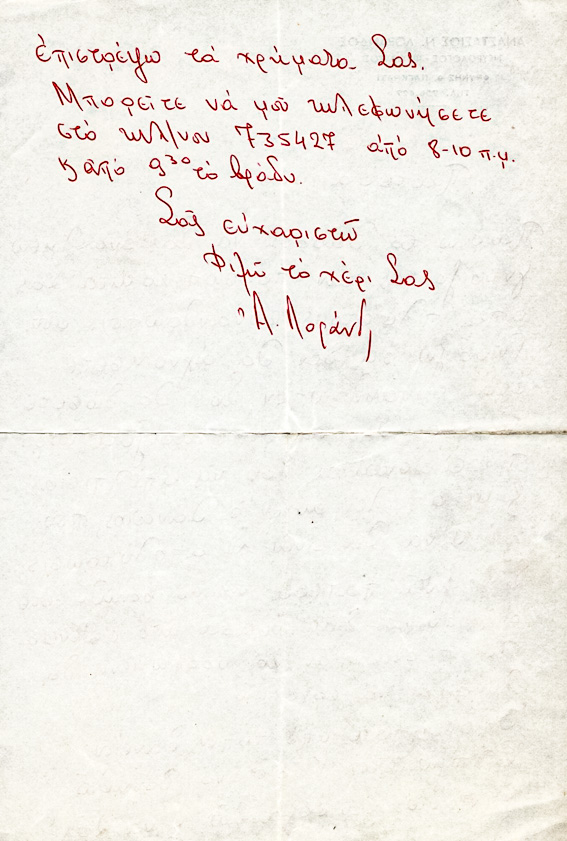 ἐπιστρέψω τά χρήματα Σας.
Μπορεῖτε νά μοῦ τηλεφωνήσετε
στό τηλ/νον 735427 ἀπό 8-10 π.μ.
ἀπό 9³⁰ τό βράδυ.
Σᾶς εὐχαριστῶ
Φιλῶ τό χέρι Σας